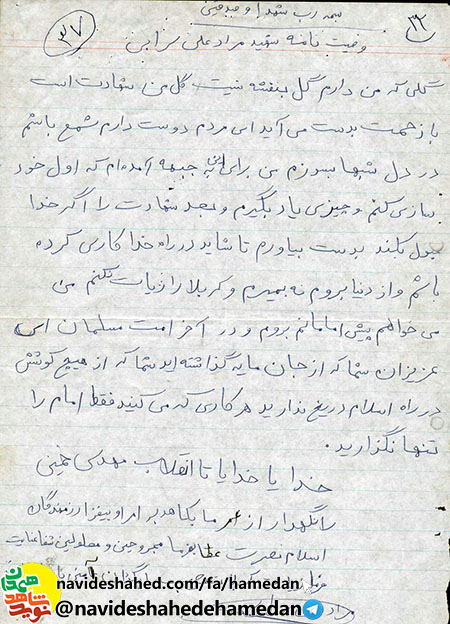 بسمه رب شهدا و صدیقین
۳۲
۳۷
وصیت نامه شهید مراد علی ترابی
گلی که من دارم گل بنفشه نیست گل من شهادت است
با زحمت بدست می آید ای مردم دوست دارم شمع باشم
در دل شبها بسوزم من برای این به جبهه آمده ام که اول خود
سازی کنم و چیزی یاد بگیرم و بعد شهادت را اگر خدا
قبول بکند بدست بیاورم تا شاید در راه خدا کاری کرده
باشم و از دنیا بروم نه بمیرم و کربلا را زیات نکنم من
می خواهم پیش امامانم بروم و در آخر امت مسلمان ای
عزیزان شما که از جان مایه گذاشته اید شما که از هیچ کوشش
در راه اسلام دریغ ندارید هر کاری که می کنید فقط امام را
تنها نگذارید.
خدایا خدایا تا انقلاب مهدی خمینی
را نگهدار از عمر ما بکاه بر عمر او بیفزا رزمندگان
اسلام نصرت عطا بفرما مجروحین و معلولین شفا عنایت
navideshahed.com/fa/hamedan
@navideshahedehamedan
نوید شاهد
همدان